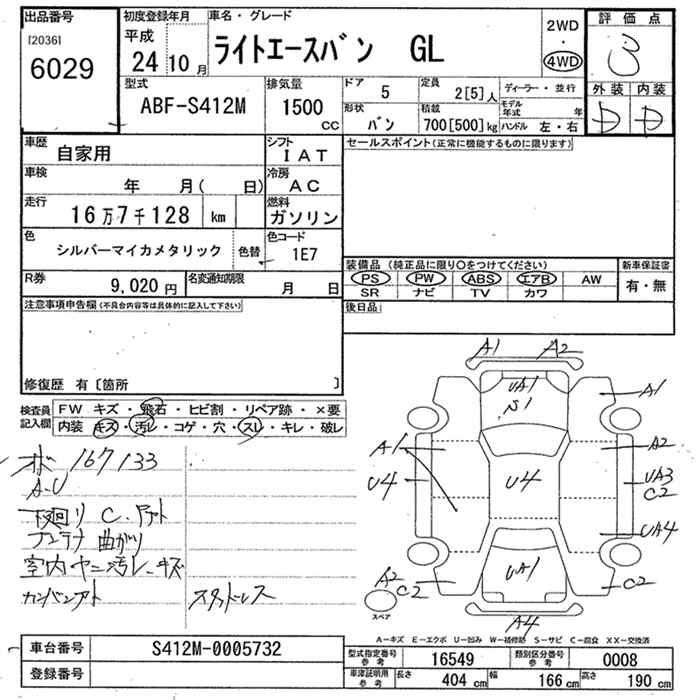 出品番号 初度登録年月 車名・グレード 2WD 評価点
[2036] 平成 ライトエースバン GL ・ 3
6029 24 10月 4WD 外装 内装
型式 排気量 ドア 5 定員 2[5]人 ディーラー・並行 D D
ABF-S412M 1500 cc 形状 バン 積載 700[500]kg モデル年式 年 ハンドル 左・右
車歴 自家用 シフト IAT セールスポイント(正常に機能するものに限ります)
車検 年 月( 日) 冷房 AC
走行 16万7千128 km 燃料 ガソリン
色 シルバーマイカメタリック 色替 色コード 1E7
装備品(純正品に限り○をつけてください) 新車保証書
R券 9,020円 名変通知期限 月 日 PS PW ABS エアB AW 有・無
SR ナビ TV カワ
注意事項申告欄(不具合内容等は具体的に記入して下さい) 後日品
修復歴 有 [箇所 ]
検査員 記入欄 FW キズ・飛石・ヒビ割・リペア跡・×要
内装 キズ・汚レ・コゲ・穴・スレ・キレ・破レ
A1 A2
UA1 A1
S1
A1 A2
U4 U4 UA3
C2
UA4
A2 UA1 C2
C2
A4
スペア
167133
A-U
下廻り C
アンテナ 曲がり
室内 ヤニ汚レ、キズ
カンバンアト スタッドレス
A-キズ E-エクボ U-凹み W-補修跡 S-サビ C-腐食 XX-交換済
車台番号 S412M-0005732 型式指定番号 参考 16549 類別区分番号 参考 0008
登録番号 車庫証明用 参考 長さ 404 cm 幅 166 cm 高さ 190 cm